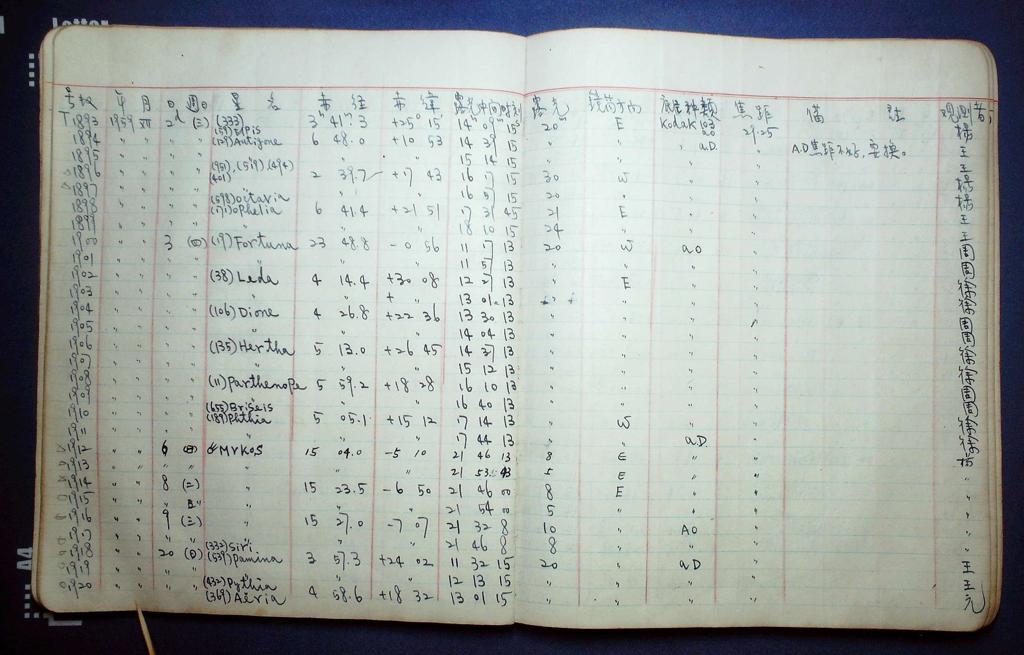 Letter
号数 年 月 日 週日 星名 赤经 赤纬 露光中间时刻 露光 镜筒方向 底片种类 焦距 备註 观测者
T1893 1959 XII 2d (三) (333) 3h 41m 3 +25° 15' 14h 09m 15s 20 E Kodak 103 a.o 29.25 杨
1894 " " " (59) Elpis (129) Antigone 6 48.0 +10 53 14 39 15 " " " a.D. " A.D焦距不好,要换。 王
1895 " " " " " 15 14 15 " " " " 王
1896 " " " (951), (519), (494) (401) 2 39.7 +7 43 16 7 15 30 W " " 杨
1897 " " " 16 37 15 20 " " " 杨
1898 " " " (598) Octavia (171) Ophelia 6 41.4 +21 51 17 31 45 21 E " " 王
1899 " " " " " 18 10 15 24 " " " 王
1900 " " 3 (四) (19) Fortuna 23 48.8 -0 56 11 7 13 20 W a.o " 周
1901 " " " " " " 11 37 13 " " " " 周
1902 " " " (38) Leda 4 14.4 +30 08 12 27 13 " E " " 徐
1903 " " " " " + 13 01 13 " " " " 徐
1904 " " " (106) Dione 4 26.8 +22 36 13 30 13 " " " " 周
1905 " " " " " " 14 04 13 " " " " 周
1906 " " " (135) Hertha 5 13.0 +26 45 14 37 13 " " " " 徐
1907 " " " " " " 15 12 13 " " " " 徐
1908 " " " (11) Parthenope 5 59.2 +18 28 16 10 13 " " " " 周
1909 " " " " " " 16 40 13 " " " " 周
1910 " " " (655) Briseis (189) Phthia 5 05.1 +15 12 17 14 13 " W " " 徐
1911 " " " " " " 17 44 13 " " a.D. " 徐
1912 " " 6 (日) Mrkos 15 04.0 -5 10 21 46 13 8 E " " 杨
1913 " " " " " " 21 53 43 5 E " " "
1914 " " 8 (二) " 15 23.5 -6 50 21 46 00 8 E " " "
1915 " " " " " " 21 54 00 5 " " " "
1916 " " 9 (三) " 15 27.0 -7 07 21 32 8 10 " A.O " "
1917 " " " " " " 21 46 8 8 " " " "
1918 " " 20 (日) (332) Siri (539) Pamina 3 57.3 +24 02 11 32 15 20 " a.D " 王
1919 " " " " " 12 13 15 " " " " 王
1920 " " " (432) Pythia (369) Aeria 4 58.6 +18 32 13 01 15 " " " " 元
A4